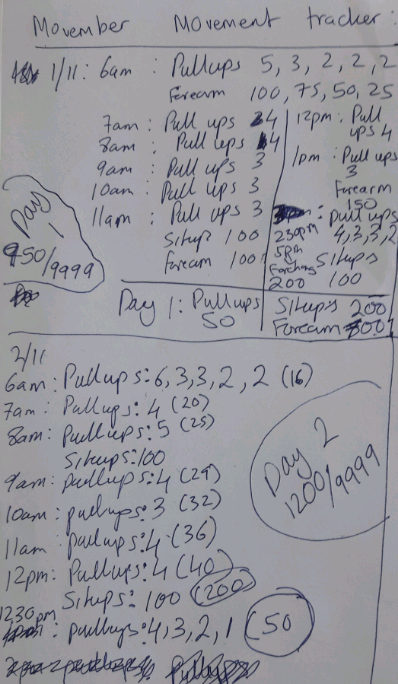 Movember Movement tracker:
1/11: 6am: Pullups 5, 3, 2, 2, 2
Forearm 100, 75, 50, 25
7am: Pull ups 4
8am: Pull ups 4
9am: Pull ups 3
10am: Pull ups 3
11am: Pull ups 3
Situp 100
Forearm 100
12pm: Pull
ups 4
1pm: Pull ups
3
Forearm
150
: Pull ups
230pm 4,3,3,2
5pm Situps
200 100
Day
1
950/9999
Day 1: Pullups
50
Situps 200
Forearm 800
2/11
6am: Pullups: 6, 3, 3, 2, 2 (16)
7am: Pullups: 4 (20)
8am: Pullups: 5 (25)
Situps: 100
9am: pullups: 4 (29)
10am: pullups: 3 (32)
11am: pullups: 4 (36)
12pm: Pullups: 4 (40)
Situps: 100 (200)
1230pm
: pullups: 4, 3, 2, 1 (50)
Day 2
1200/9999